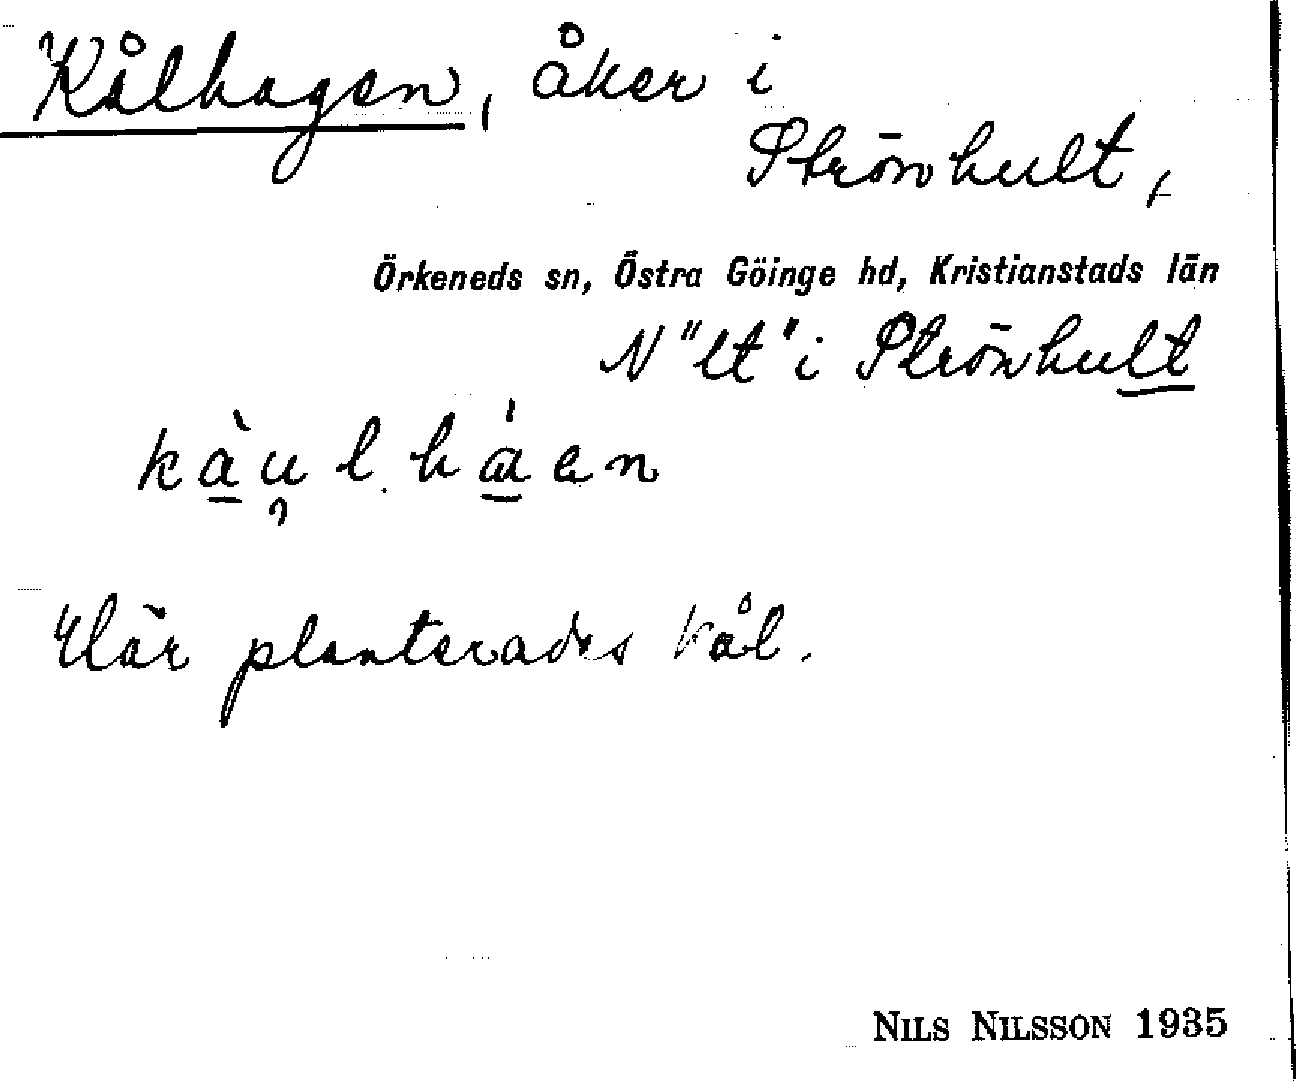 Kålhagen, åker i
Strönhult,
Örkeneds sn, Östra Göinge hd, Kristianstads län
N "lt" i Strönhult
kàu̢lháen
Här planterades kål.
NILS NILSSON 1935